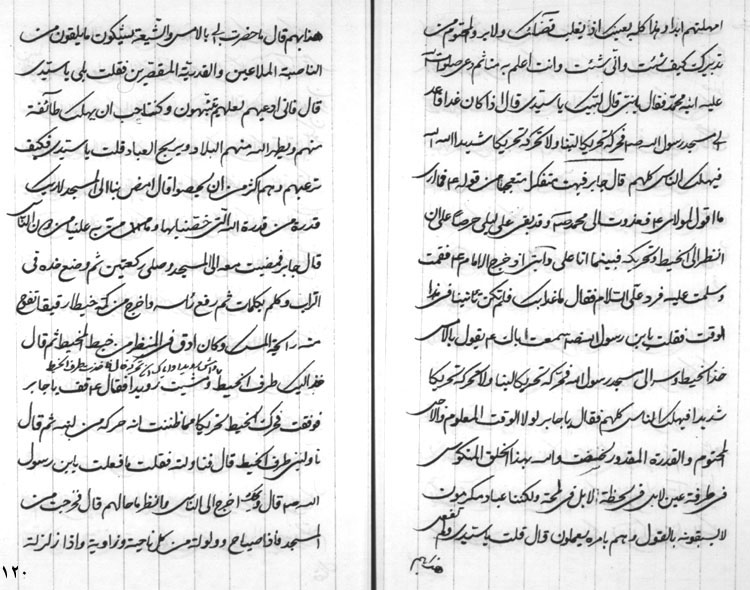 امهلتهم ابدا و هذا كله بعينك اذ لا يغلب قضائك ولا يرد المحتوم من
تدبيرك كيف شئت وانى شئت وانت اعلم به منا ثم دعى صلوات الله
عليه ابنه محمد فقال يا بنى قال لبيك يا سيدى قال اذا كان غدا فاغد
الى مسجد رسول الله ص فحركه تحريكا لينا ولا تحركه تحريكا شديدا الله الله
فيهلك الناس كلهم قال جابر فبقيت متفكرا متعجبا من قوله ع فما ادرى
ما اقول لمولاى ع فغدوت الى محمد وقد بقى على ليلى حرصا على ان
انظر الى الخيط وتحريكه فبينما انا على دابتى اذ خرج الامام ع فقمت
وسلمت عليه فرد على السلام فقال ما غدا بك فلم تكن تأتينا فى هذا
الوقت فقلت يا بن رسول الله ص سمعت اباك ع يقول بالامس
خذ الخيط وسر الى مسجد رسول الله فحركه تحريكا لينا ولا تحركه تحريكا
شديدا فيهلك الناس كلهم فقال يا جابر لولا الوقت المعلوم والاجل
المحتوم والقدر المقدور لخسفت والله بهذا الخلق المنكوس
فى طرفة عين لا بل فى لحظة لا بل فى لمحة ولكننا عباد مكرمون
لا يسبقونه بالقول وهم بامره يعملون قال قلت يا سيدى ولم تفعل
هذا بهم
هذا بهم قال ما حضرت ابى بالامس والشيعة يشكون ما يلقون من
الناصبة الملاعين والقدرية المقصرين فقلت بلى يا سيدى
قال فانى ارعبهم لعلهم ينتبهون وكنت احب ان يهلك طائفة
منهم ويطهر الله منهم البلاد ويريح العباد قلت يا سيدى فكيف
ترعبهم وهم اكثر من ان يحصوا قال امض بنا الى المسجد لاريك
قدرة من قدرة الله التى خصنا بها وما من به علينا من دون الناس
قال جابر فمضيت معه الى المسجد وصلى ركعتين ثم وضع خده فى
التراب وكلم بكلمات ثم رفع راسه واخرج من كمه خيطا رقيقا تفوح
منه رائحة المسك وكان ادق فى المنظر من خيط المخيط ثم قال
خذ اليك طرف الخيط وشيت رويدا فقال ع قف يا جابر
فوقفت فحرك الخيط تحريكا فما ظننت انه حركه من لينه ثم قال
ناولنى طرف الخيط قال فناولته فقلت ما فعلت يا بن رسول
الله ص قال ويحك اخرج الى الناس وانظر ما حالهم قال فخرجت من
المسجد فاذا صياح وولولة من كل ناحية وزاوية واذا زلزلة
١٢٠